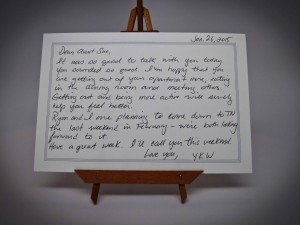 Jan. 26, 2015
Dear Aunt Sue,
It was so good to talk with you today.
You sounded so good. I'm happy that you
are getting out of your apartment more, eating
in the dining room and meeting others.
Getting out and being more active will surely
help you feel better.
Ryan and I are planning to come down to TN
the last weekend in February - we're both looking
forward to it.
Have a great week. I'll call you this weekend.
Love you,
YKW